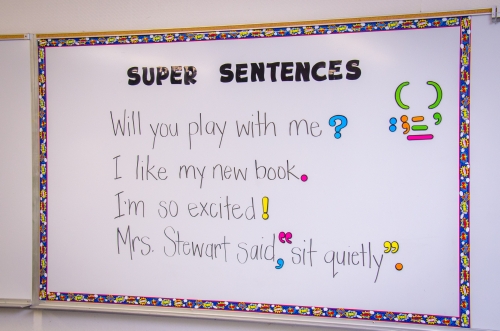 SUPER SENTENCES
Will you play with me?
I like my new book.
I'm so excited!
Mrs. Stewart said, “sit quietly”.